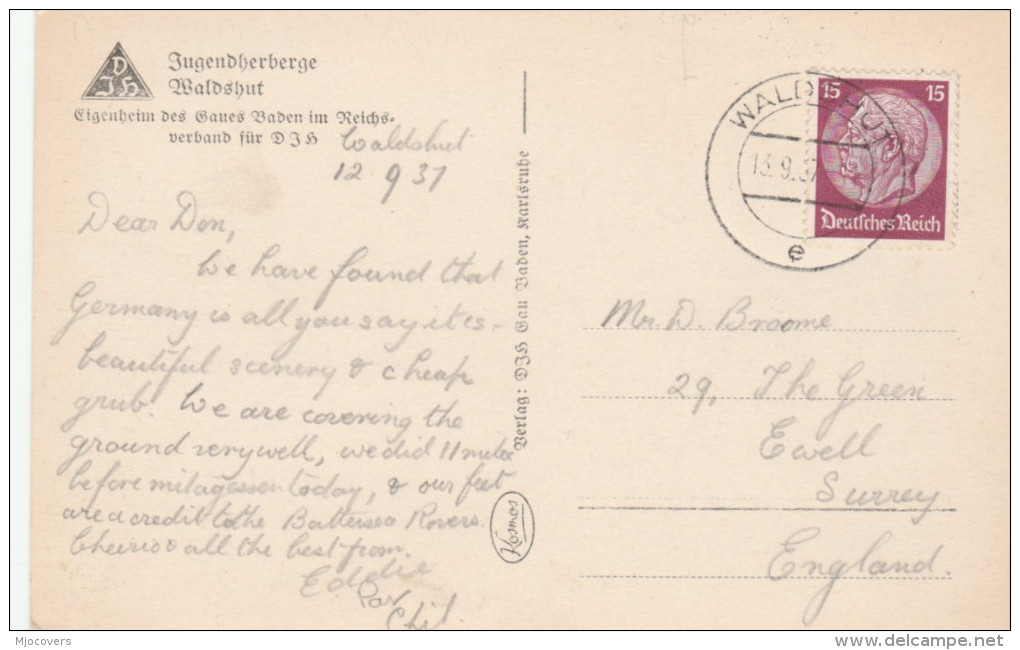 DJH
Jugendherberge
Waldshut
Eigenheim des Gaues Baden im Reichs-
verband für DJH
Waldshut
12 9 37
Dear Don,
We have found that
Germany is all you say it is -
beautiful scenery & cheap
grub. We are covering the
ground very well, we did 11 miles
before mitagessen today, & our feet
are a credit to the Battersea Rovers.
Cheerio & all the best from.
Eddie
Chil.
Verlag: DJH Gau Baden, Karlsruhe
Kosmos
WALDSHUT
13.9.37
e
15 15
Deutsches Reich
Mr. D. Broome
29, The Green
Ewell
Surrey
England.
Mjocovers
delcampe.net